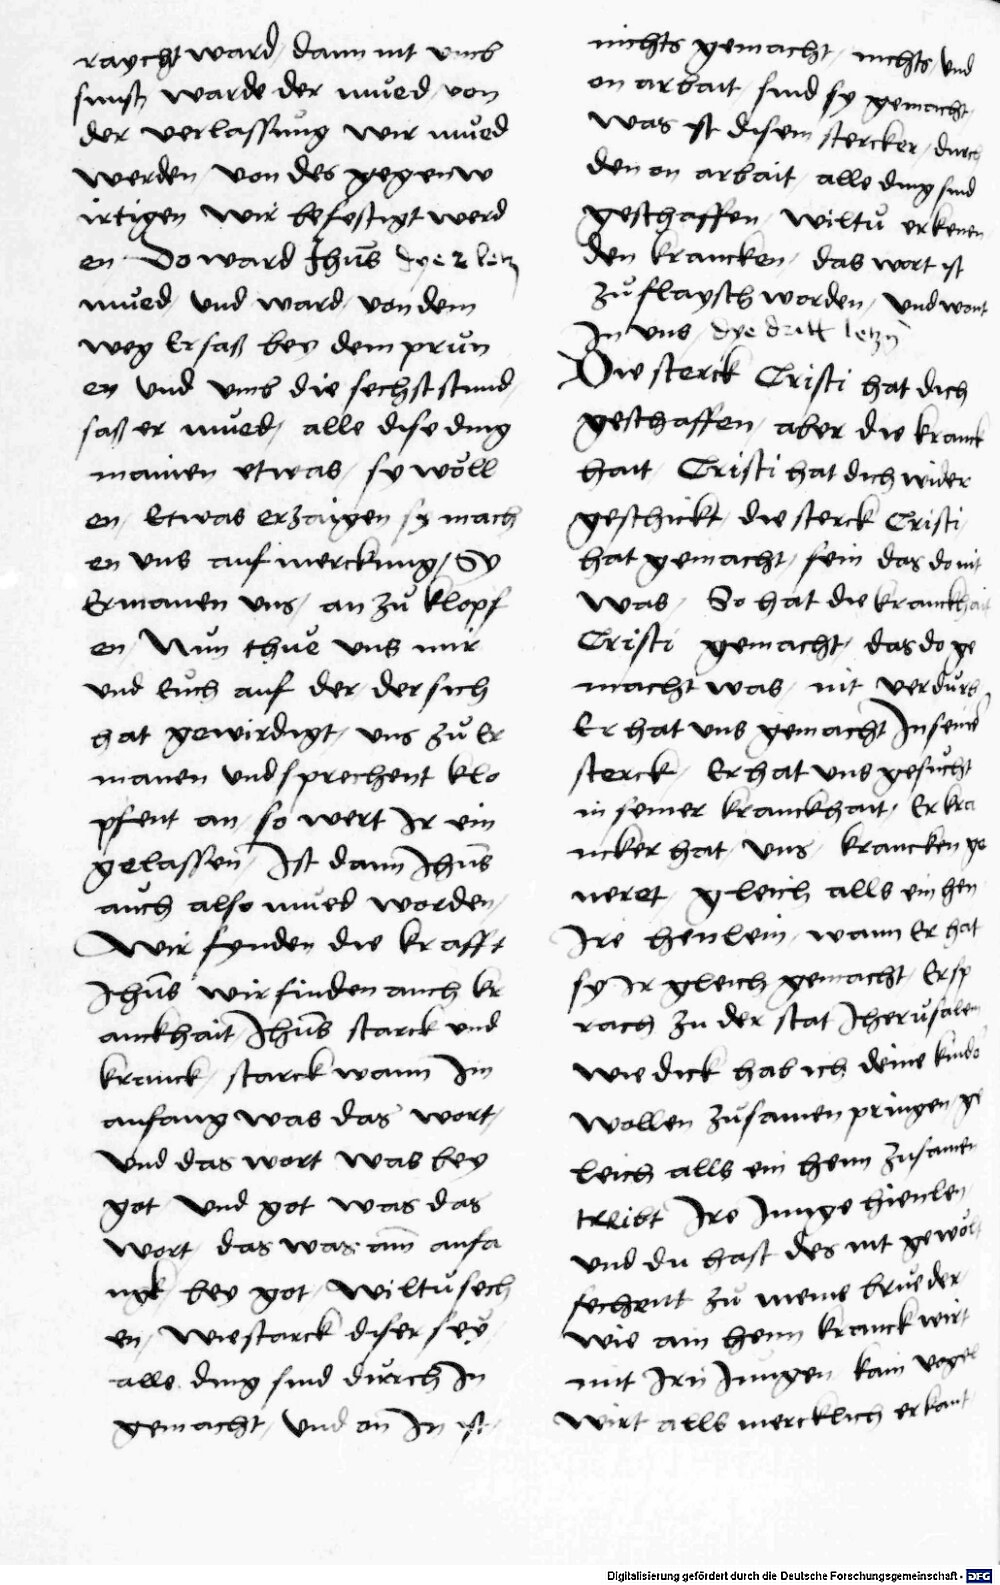 raycht ward / dann nit umb
sunst warde der mued / von
der verlassung wir mued
werden / von des gegenw
irtigen wir befestigt werd
en Do ward Jhus dye 2 letz
mued / und ward / von dem
weg Er saß bey dem prun
en und umb die sechst stund /
saß er mued / alle dise ding
mainen etwas / sy wöll
en / Etwas erzaigen sy mach
en uns aufmerckung / Sy
Ermanen uns / an zů klopf
en / Nun thue uns mir
und Euch auf der / der sich
hat gewirdigt / uns zů Er
manen und sprechent klo
pfent an / so wert Ir ein
gelassen / Ist dann Jhus
auch also mued worden /
Wir fynden die krafft
Jhus wir finden auch kr
anckhait Jhus starck und
kranck / starck wann Im
anfang was das wort /
und das wort was bey
got und got was das
wort / das was am anfa
ngk bey got / wiltu sech
en / wie starck diser sey /
alle ding sind durch In
gemacht / und on In ist /
nichts gemacht / nichts / und
on arbait / sind sy gemacht /
was ist disem stercker / durch
den on arbait / alle ding sind
geschaffen / wiltu erkenen
den krancken / das wort ist
zů flaysch worden / und wont
In uns / dye dritt letzn
Die sterck Cristi hat dich
geschaffen / aber die kranck
hait / Cristi hat dich wider
geschickt / die sterck Cristi /
hat gemacht / sein das do nit
was / So hat die kranckhait
Cristi gemacht / das do ge
macht was / nit verdurb
Er hat uns gemacht In seine
sterck / Er hat uns gesucht
in seiner kranckhait / Er kra
ncker hat / uns / krancken ge
neret / gleich alls ein hen
Ire henlein / wann Er hat
sy Ir gleich gemacht / Er sp
rach zu der stat Jherusalem
wie dick hab ich deine kinde
wollen zusamen pringen / ge
leich alls ein henn zusamen
treibt Ire Junge hienlen /
und du hast des nit gewölt
sechent zů meine brueder /
wie ain henn kranck wirt
mit Irn Jungen / kain vogel
wirt alls mercklich erkant /
Digitalisierung gefördert durch die Deutsche Forschungsgemeinschaft - DFG